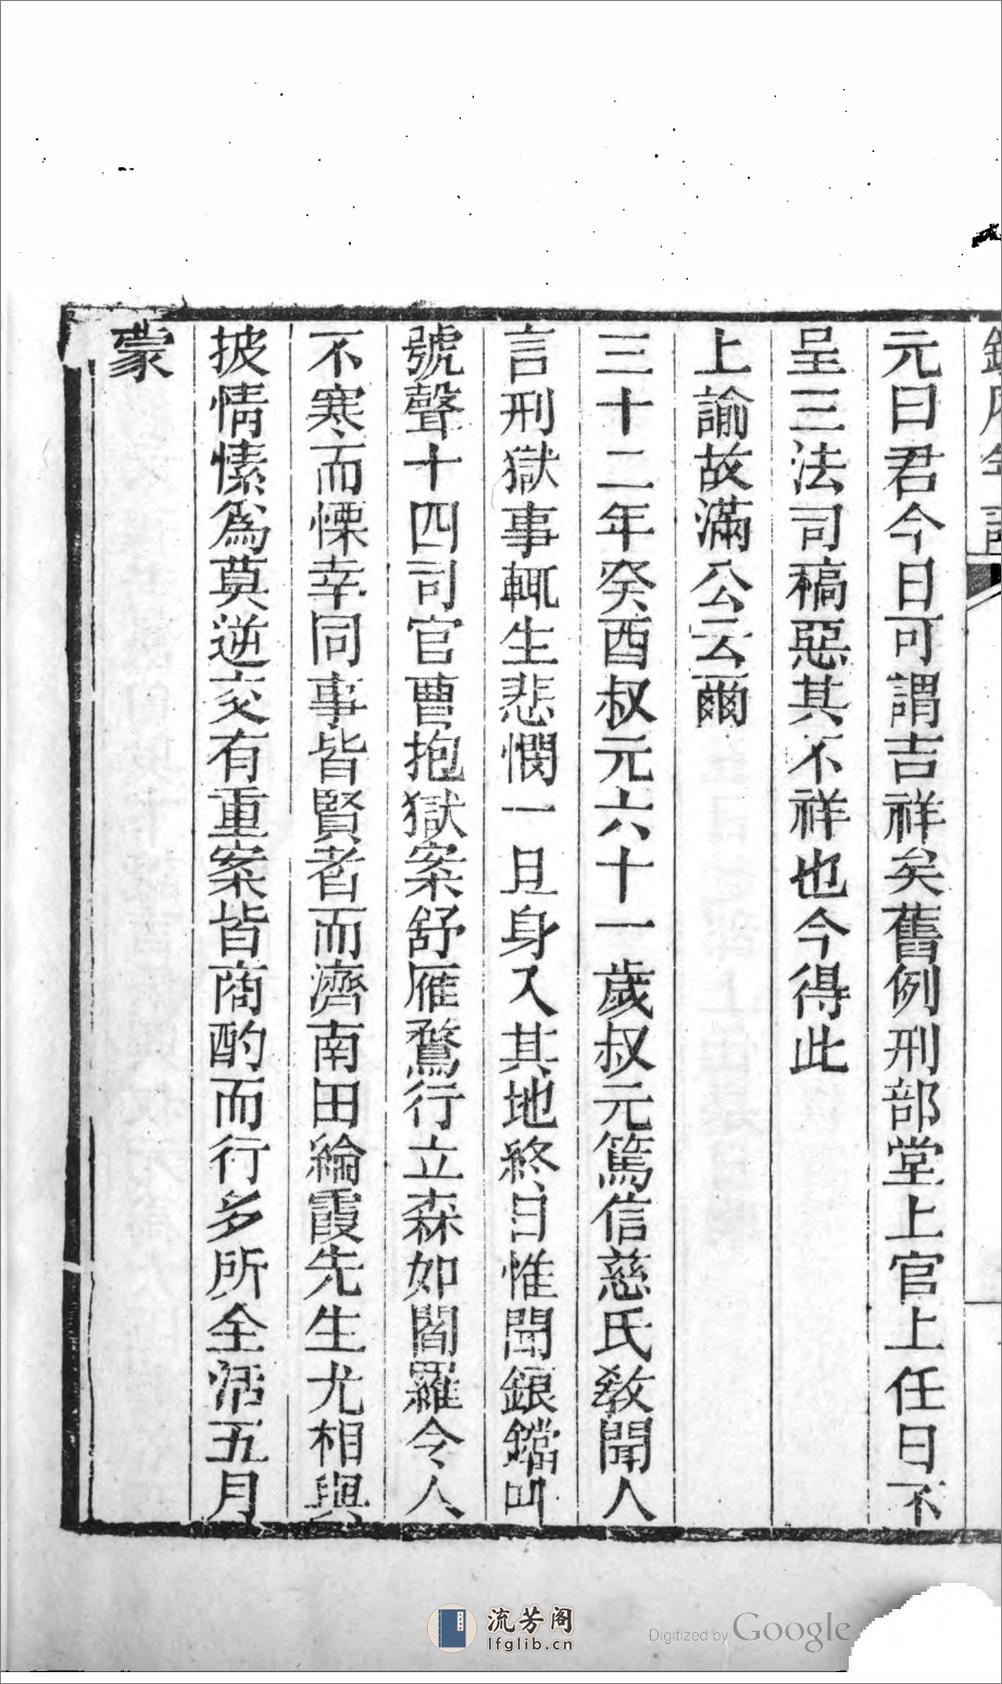 元曰君今日可謂吉祥矣舊例刑部堂上官上任日不
呈三法司稿惡其不祥也今得此
上諭故滿公云爾
三十二年癸酉叔元六十一歲叔元篤信慈氏敎聞人
言刑獄事輒生悲憫一旦身入其地終日惟聞鋃鐺叫
號聲十四司官曹抱獄案舒雁鶩行立森如閻羅令人
不寒而慄幸同事皆賢者而濟南田綸霞先生尤相與
披情愫爲莫逆交有重案皆商酌而行多所全活五月
蒙
流芳阁
lfglib.cn
Digitized by Google